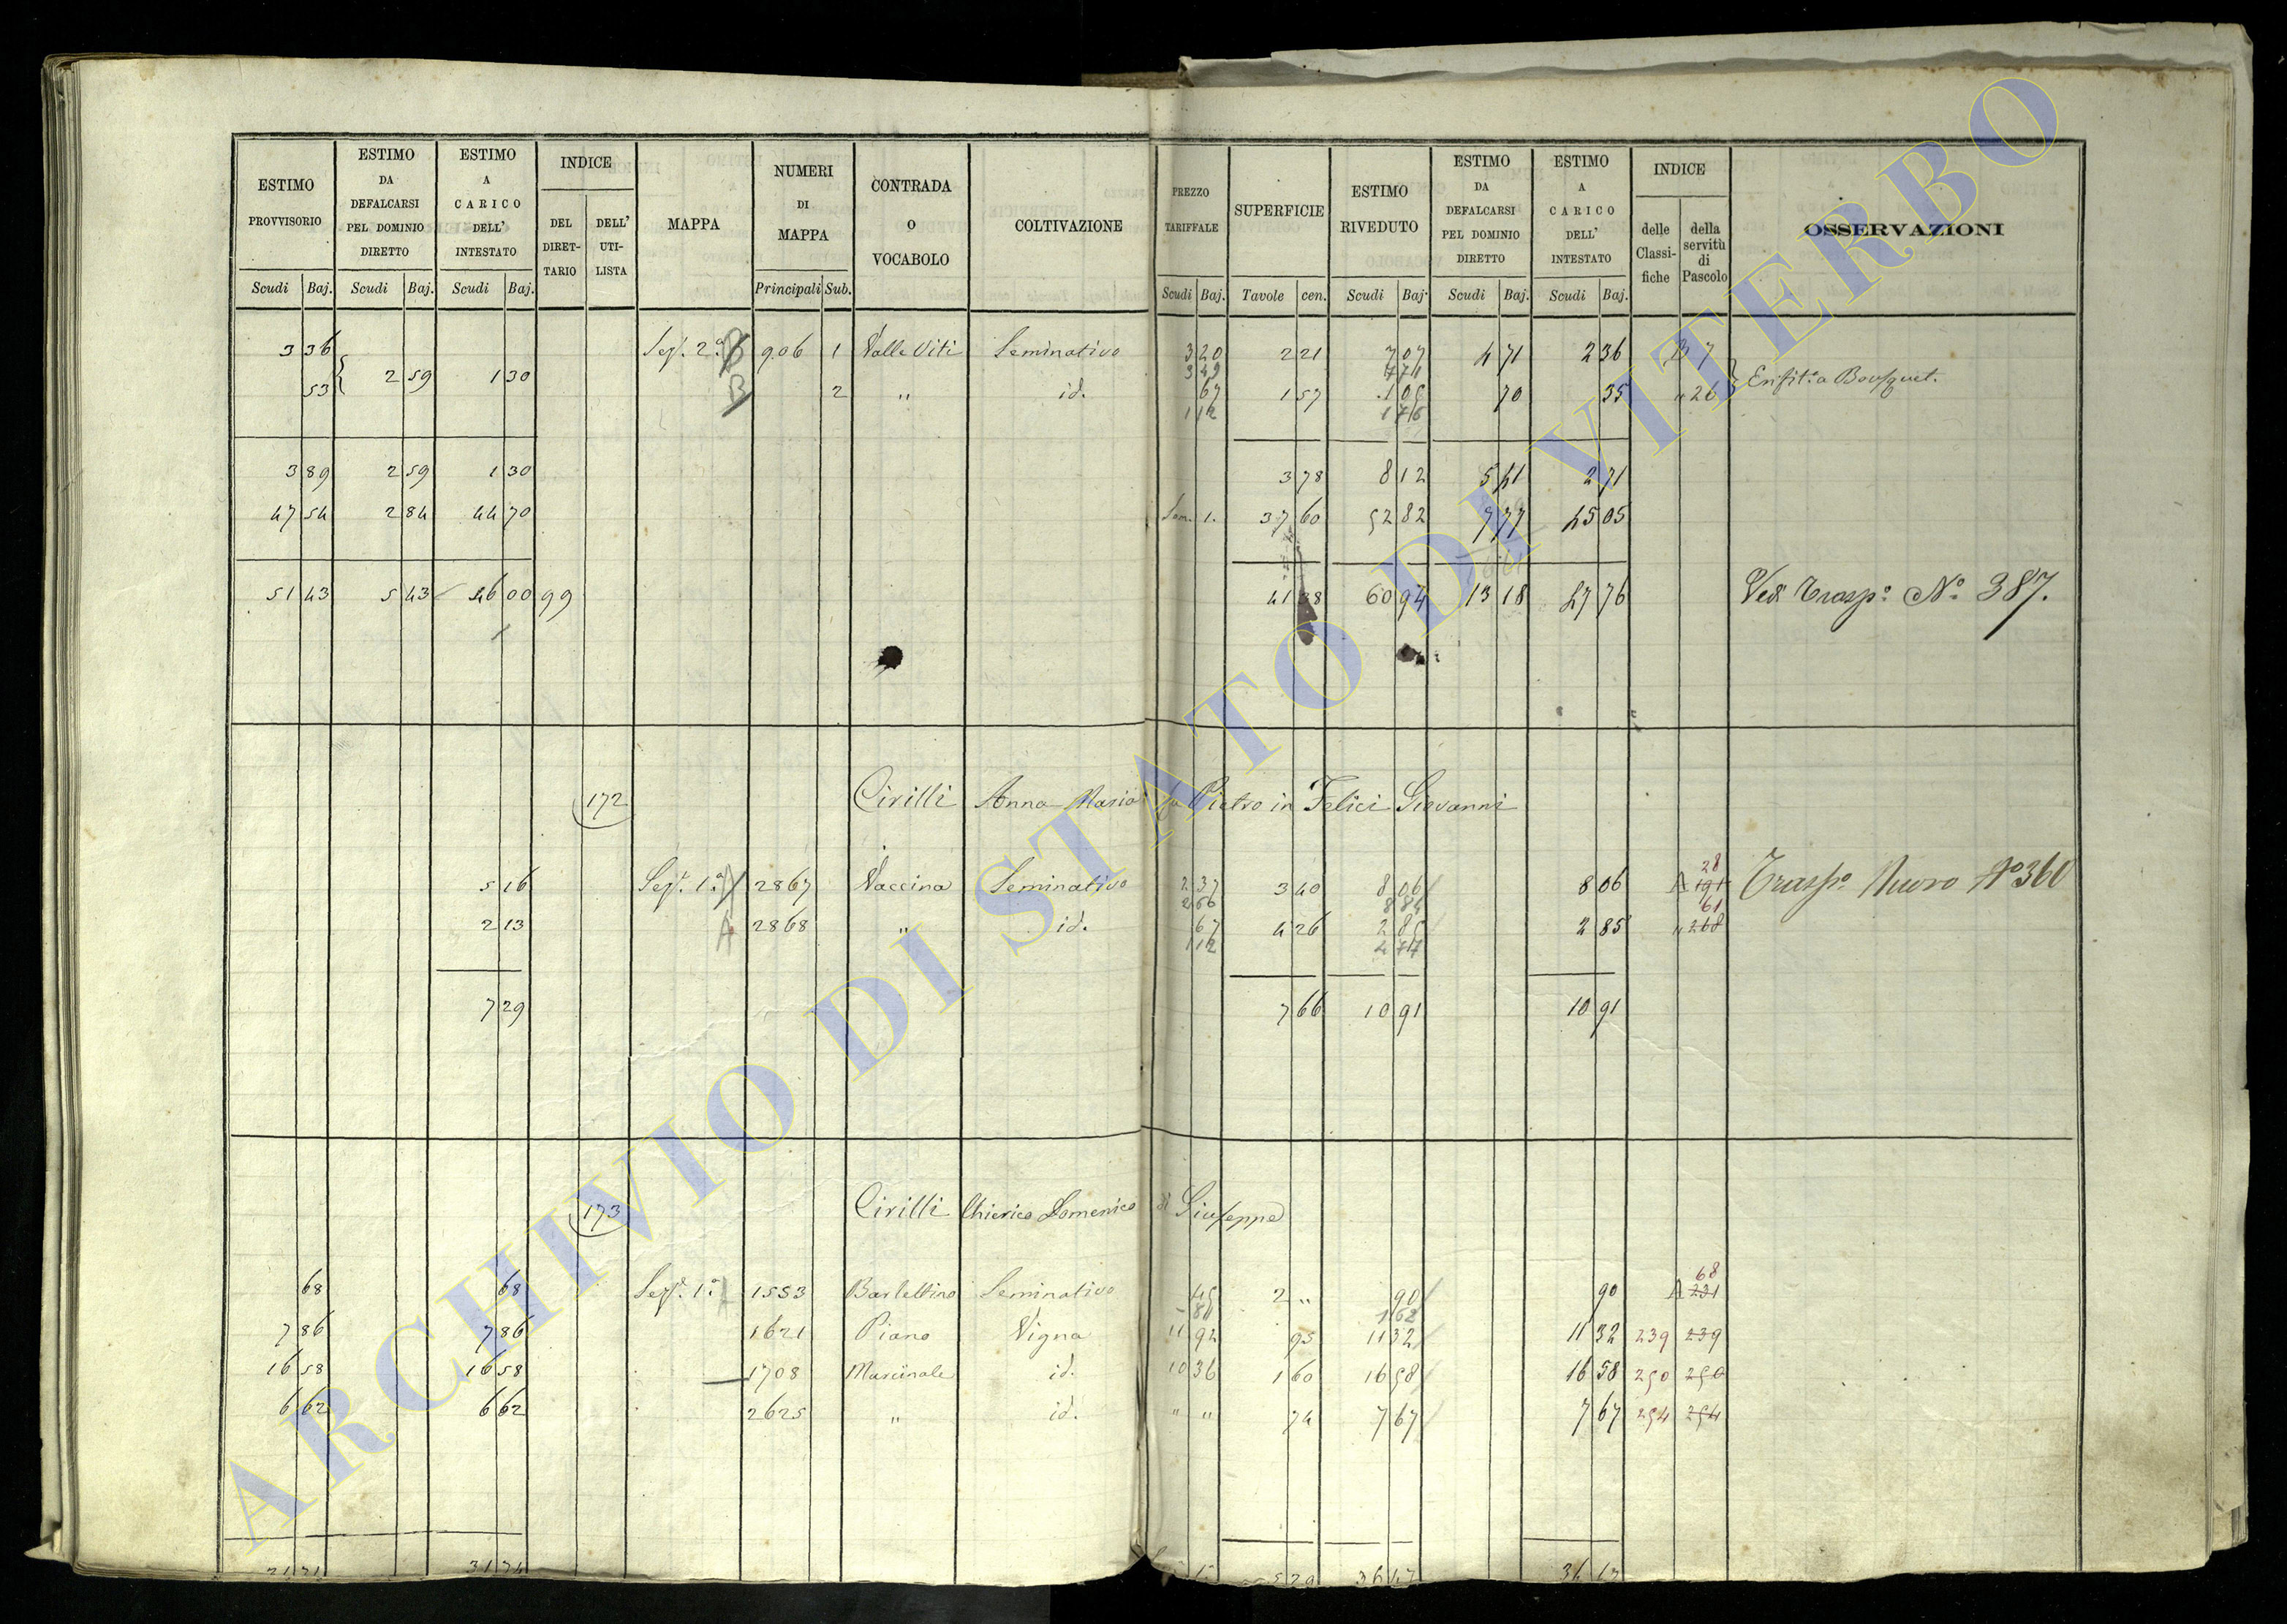 ESTIMO PROVVISORIO Scudi Baj.
ESTIMO DA DEFALCARSI PEL DOMINIO DIRETTO Scudi Baj.
ESTIMO A CARICO DELL' INTESTATO Scudi Baj.
INDICE DEL DIRET-TARIO DELL' UTI-LISTA
MAPPA
NUMERI DI MAPPA Principali Sub.
CONTRADA O VOCABOLO
COLTIVAZIONE
PREZZO TARIFFALE Scudi Baj.
SUPERFICIE Tavole cen.
ESTIMO RIVEDUTO Scudi Baj.
ESTIMO DA DEFALCARSI PEL DOMINIO DIRETTO Scudi Baj.
ESTIMO A CARICO DELL' INTESTATO Scudi Baj.
INDICE delle Classi-fiche della servitù di Pascolo
OSSERVAZIONI
3 36 Sez. 2ª B 906 1 Valle Viti Seminativo 3 20 2 21 7 07 4 71 2 36 B 7
3 49 7 71
53 2 59 1 30 B 2 " id. 67 1 57 1 05 70 35 " 26 Enfit. a Bousquet.
1 12 1 76
3 89 2 59 1 30 3 78 8 12 5 41 2 71
47 54 2 84 44 70 Som. 1. 37 60 52 82 7 77 45 05
51 43 5 43 46 00 99 41 38 60 94 13 18 47 76 Vedi Trasp.º Nº 387.
172 Cirilli Anna Maria fu Pietro in Felici Giovanni
5 16 Sez. 1ª A 2867 Vaccina Seminativo 2 37 3 40 8 06 8 06 A 191 28 Trasp.º Nuovo Nº 360
2 66 8 84
2 13 A 2868 " id. 67 4 26 2 85 2 85 " 268 61
1 12 4 77
7 29 7 66 10 91 10 91
173 Cirilli Chierico Domenico di Giuseppe
68 68 Sez. 1ª 1553 Barlettino Seminativo 45 2 " 90 90 A 231 68
81 1 62
7 86 7 86 1621 Piano Vigna 11 92 95 11 32 11 32 239 239
16 58 16 58 1708 Marcinale id. 10 36 1 60 16 58 16 58 250 250
6 62 6 62 2625 " id. " " 74 7 67 7 67 254 254
31 74 5 29 36 47
ARCHIVIO DI STATO DI VITERBO